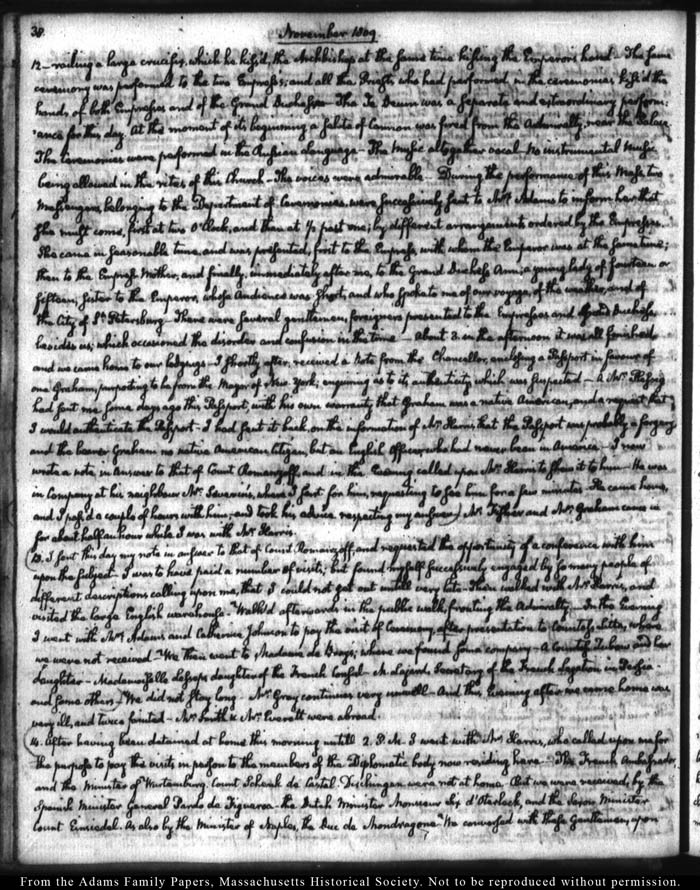 38.
November 1809
12 — vailing a large crucifix, which he kiss'd, the Archbishop at the same time kissing the Emperor's hand — The same
ceremony was performed to the two Empresses; and all the Priests who had performed in the ceremonies kiss'd the
hands of both Empresses and of the Grand Duchesses — The Te Deum was a separate and extraordinary perform:
:ance for this day. At the moment of its beginning a salute of Cannon was fired from the Admiralty, near the Palace.
The Ceremonies were performed in the Russian language — The Music altogether vocal. No instrumental Music
being allowed in the rites of this Church — The voices were admirable — During the performance of this Mass two
Messengers, belonging to the Department of Ceremonies, were successively sent to Mrs. Adams to inform her that
she must come, first at two O'Clock, and then at ½ past one; by different arrangements ordered by the Empresses.
She came in seasonable time, and was presented, first to the Empress, with whom the Emperor was at the same time;
then to the Empress Mother, and finally, immediately after me, to the Grand Duchess Ann; a young lady of fourteen or
fifteen, sister to the Emperor, whose Audience was short, and who spoke to me of our voyage, of the weather, and of
the City of St. Petersburg — There were several gentlemen, foreigners presented to the Empresses and Grand Duchess
besides us; which occasioned the disorder and confusion in the time — About 3. in the afternoon it was all finished
and we came home to our lodgings — I shortly after, received a Note from the Chancellor, enclosing a Passport in favour of
one Graham, purporting to be from the Mayor of New York; enquiring as to its authenticity which was suspected — A Mr.
had sent me some days ago this Passport, with his own warranty that Graham was a native American, and a request that
I would authenticate the Passport — I had sent it back, on the information of Mr. Harris that the Passport was probably a forgery
and the bearer Graham no native American Citizen, but an English Officer who had never been in America — I now
wrote a note, in answer to that of Count Romanzoff, and in the Evening called upon Mr. Harris to shew it to him — He was
in Company at his neighbour Mr. Severin's, where I sent for him, requesting to see him for a few minutes — He came home,
and I pass'd a couple of hours with him; and took his advice respecting my answer) Mr. Fisher and Mr. Graham came in
for about half an hour while I was with Mr. Harris.
13. I sent this day my note in answer to that of Count Romanzoff, and requested the opportunity of a conference with him
upon the subject — I was to have paid a number of visits; but found myself successively engaged by so many people of
different descriptions calling upon me, that I could not get out untill very late. Then walked with Mr. Harris, and
visited the large English warehouse. Walk'd afterwards in the public walk, fronting the Admiralty — In the Evening
I went with Mrs. Adams and Catherine Johnson to pay the visit of Ceremony, after presentation to Countess Litta, where
we were not received — We then went to Madame de Bray's; where we found some company — A Countess and her
daughter — Mademoiselle Lesseps daughter of the French Consul — M. Lajard, Secretary of the French legation in Persia
and some others — We did not stay long — Mr. Gray continues very unwell — And this Evening after we came home was
very ill, and twice fainted — Mr. Smith & Mr. Everett were abroad.
14. After having been detained at home this morning untill 2. P.M. I went with Mr. Harris, who called upon me for
the purpose to pay the visits in person to the members of the Diplomatic body now residing here — The French Ambassador,
and the Minister of Wurtemburg, Count Schenk de Castel-Dischingen were not at home. But we were received, by the
Spanish Minister General Pardo de Figueroa — the Dutch Minister Monsieur Six d'Oterbeck, and the Saxon Minister
Count Einsiedel. As also by the Minister of Naples, the Duc de Mondragone — We conversed with these Gentlemen, upon
From the Adams Family Papers, Massachusetts Historical Society. Not to be reproduced without permission.